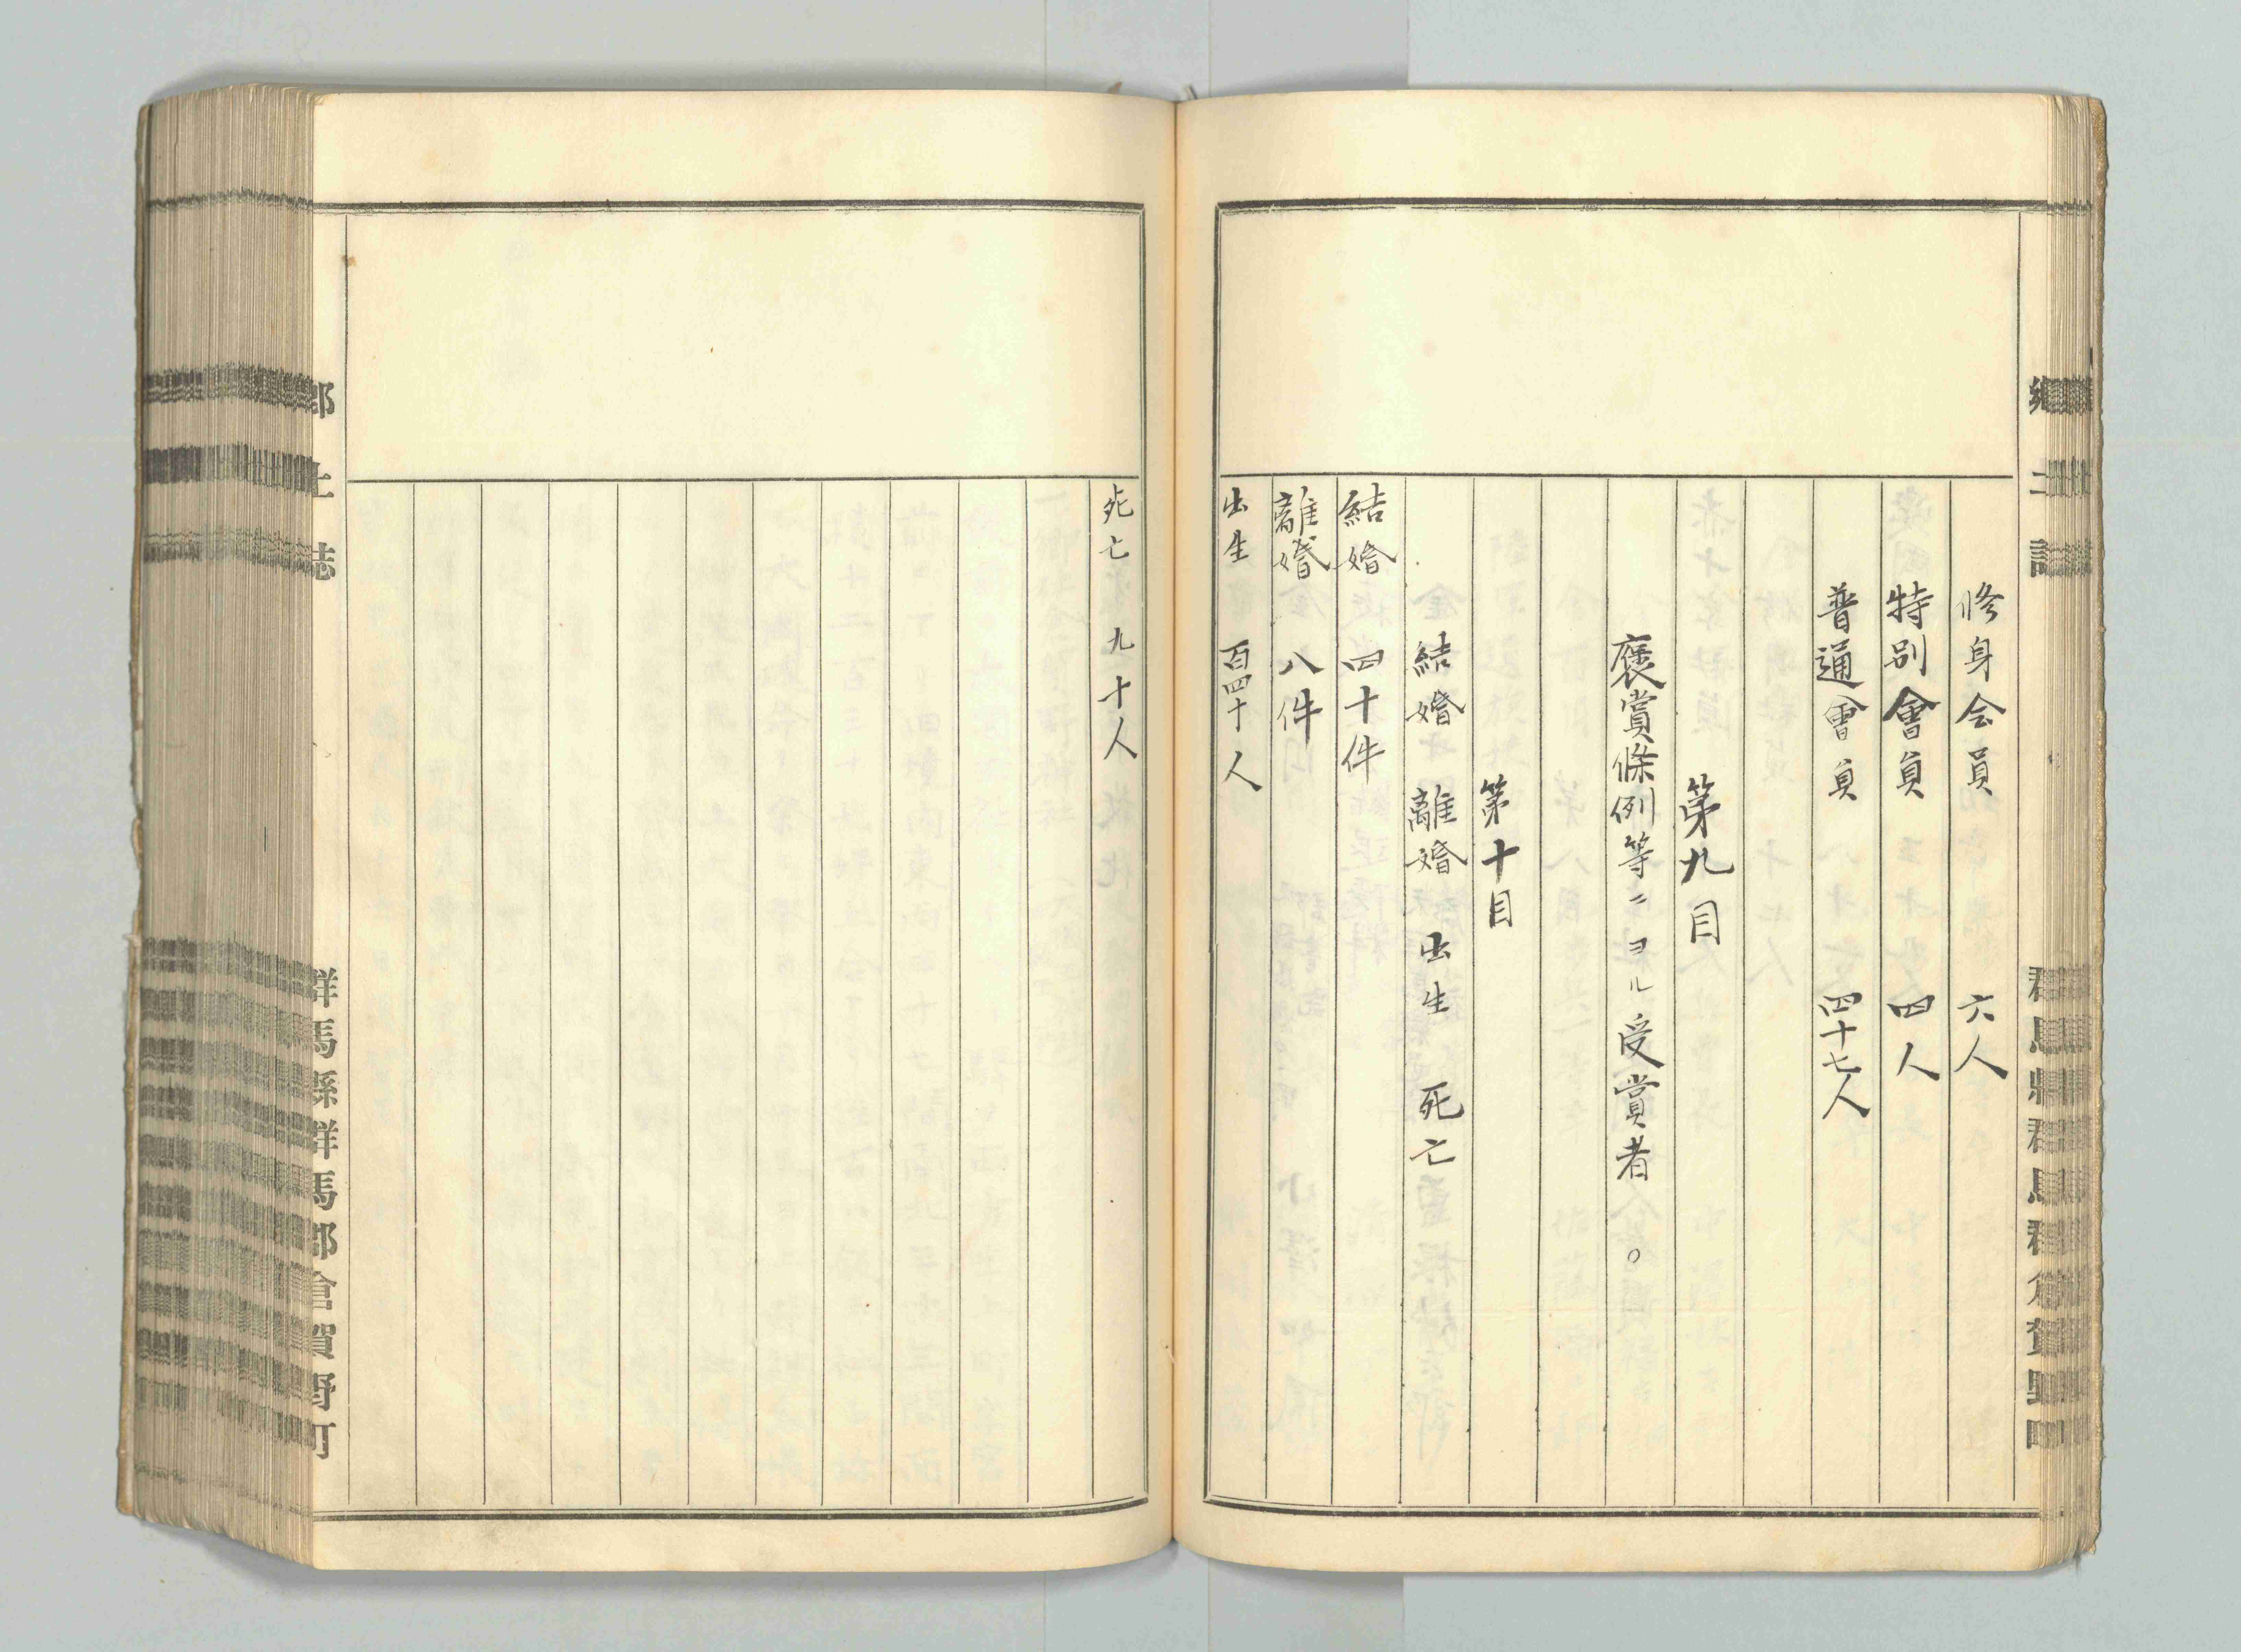 郷土誌
群馬縣群馬郡倉賀野町
修身会員 六人
特別會員 四人
普通會員 四十七人
第九目
褒賞條例等ニヨル受賞者。
第十目
結婚 離婚 出生 死亡
結婚 四十件
離婚 八件
出生 百四十人
死亡 九十人
郷土誌
群馬縣群馬郡倉賀野町